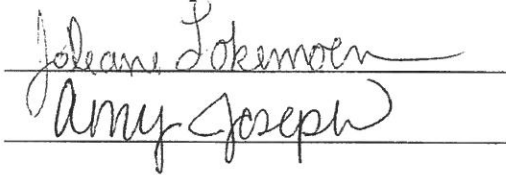 Joleane Lokemoen
Amy Joseph